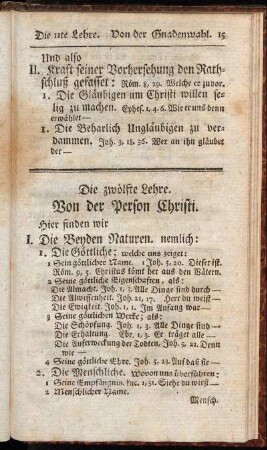 Die 11te Lehre. Von der Gnadenwahl. 15
Und also
II. Kraft seiner Vorhersehung den Rath-
schluß gefasset: Röm. 8, 29. Welche er zuvor.
1. Die Gläubigen um Christi willen se-
lig zu machen. Ephes. 1, 4. 6. Wie er uns denn
erwählet —
1. Die Beharlich Ungläubigen zu ver-
dammen. Joh. 3, 18. 36. Wer an ihn gläubet
der —
Die zwölfte Lehre.
Von der Person Christi.
Hier finden wir
I. Die Beyden Naturen. nemlich:
1. Die Göttliche; welche uns zeiget:
1 Sein götlicher Name. 1 Joh. 5, 20. Dieser ist.
Röm. 9, 5. Christus kömt her aus den Vätern.
2 Seine göttliche Eigenschaften, als:
Die Almacht. Joh. 1, 3. Alle Dinge sind durch —
Die Alwissenheit. Joh. 21, 17. Herr du weist —
Die Ewigkeit. Joh. 1, 1. Im Anfang war —
3 Seine götlichen Werke; als:
Die Schöpfung. Joh. 1, 3. Alle Dinge sind —
Die Erhaltung. Ebr. 1, 3. Er trägt alle —
Die Auferweckung der Todten. Joh. 5, 21. Denn
wie —
4 Seine götliche Ehre. Joh. 5, 23. Auf daß sie —
2. Die Menschliche. Wovon uns überführen:
1 Seine Empfängnis. Luc. 1, 31. Siehe du wirst —
2 Menschlicher Name.
Mensch.